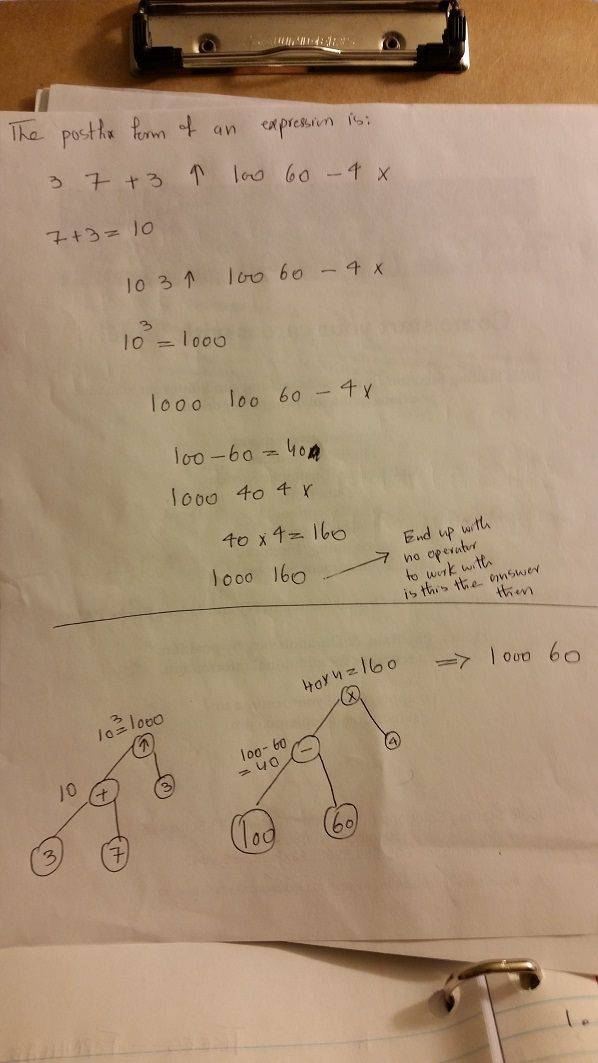 The postfix form of an expression is:
3 7 + 3 ↑ 100 60 - 4 x
7+3 = 10
10 3 ↑ 100 60 - 4 x
10³ = 1000
1000 100 60 - 4 x
100 - 60 = 40
1000 40 4 x
40 x 4 = 160
1000 160
End up with
no operator
to work with
is this the answer
then
40x4=160 => 1000 60
x
10³=1000
↑
100-60
= 40
-
4
10
+
3
3
7
100
60
1.